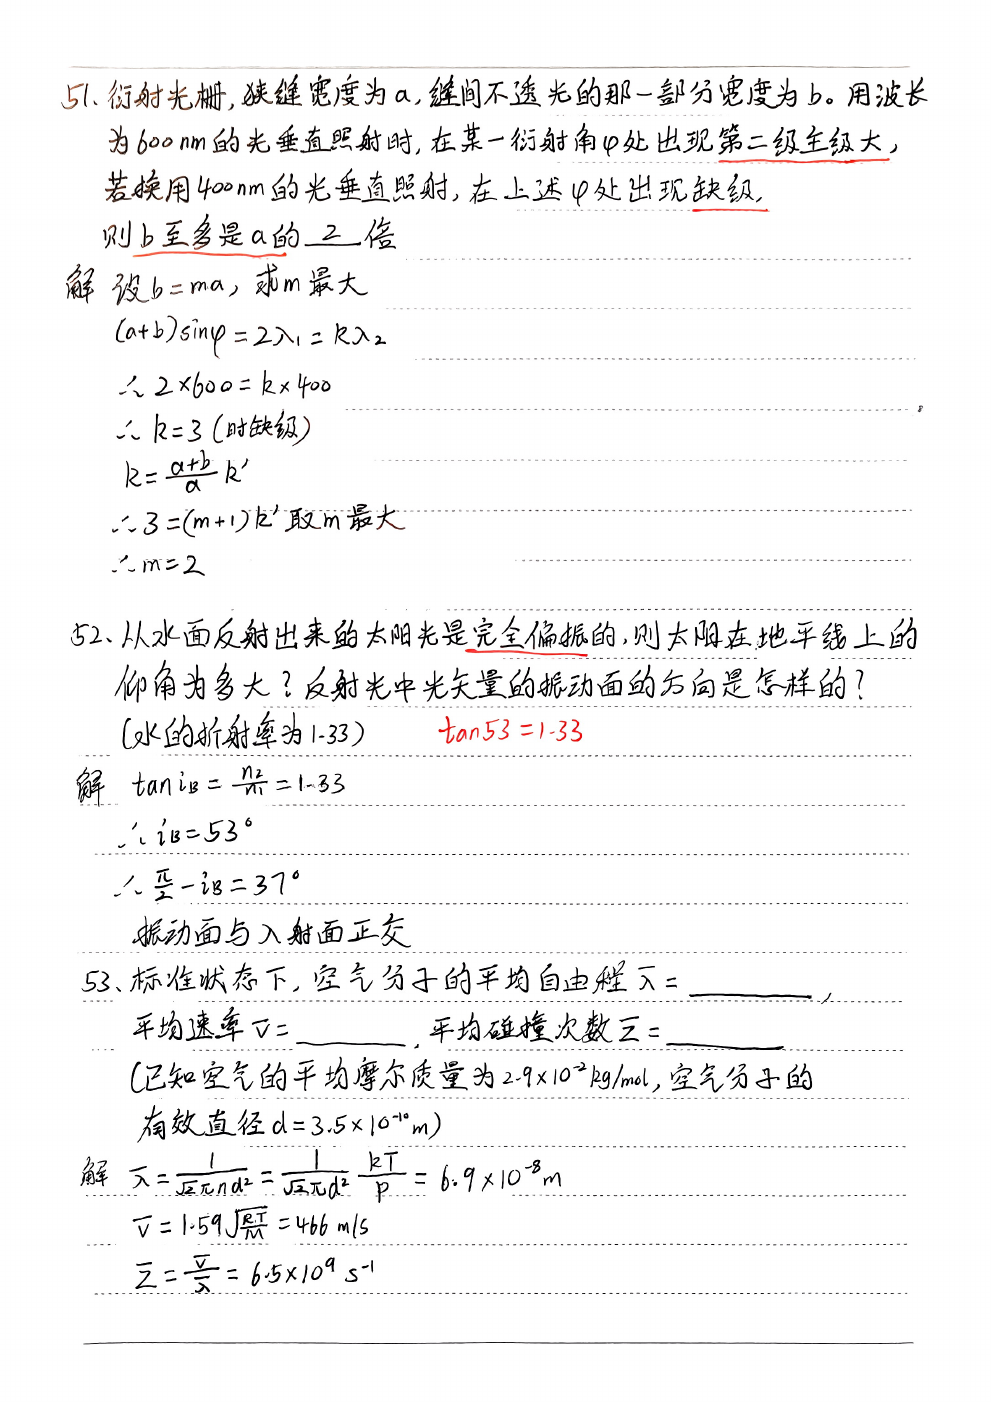 51、衍射光栅,狭缝宽度为a,缝间不透光的那一部分宽度为b。用波长
为600nm的光垂直照射时,在某一衍射角φ处出现第二级主级大,
若换用400nm的光垂直照射,在上述φ处出现缺级,
则b至多是a的 2 倍
解 设b=ma,求m最大
(a+b)sinφ=2λ₁=kλ₂
∴ 2×600=k×400
∴ k=3(时缺级)
k=\frac{a+b}{a}k'
∴3=(m+1)k'取m最大
∴m=2
52、从水面反射出来的太阳光是完全偏振的,则太阳在地平线上的
仰角为多大?反射光中光矢量的振动面的方向是怎样的?
(水的折射率为1.33) tan53=1.33
解 tan i_B=\frac{n₂}{n₁}=1.33
∴ i_B=53°
∴ \frac{π}{2}-i_B=37°
振动面与入射面正交
53、标准状态下,空气分子的平均自由程λ̄=______,
平均速率v̄=______,平均碰撞次数z̄=______
(已知空气的平均摩尔质量为2.9×10⁻²kg/mol,空气分子的
有效直径d=3.5×10⁻¹⁰m)
解 λ̄=\frac{1}{√2πnd²}=\frac{1}{√2πd²}\frac{kT}{p}=6.9×10⁻⁸m
v̄=1.59√\frac{RT}{M}=466m/s
z̄=\frac{v̄}{λ̄}=6.5×10⁹ s⁻¹